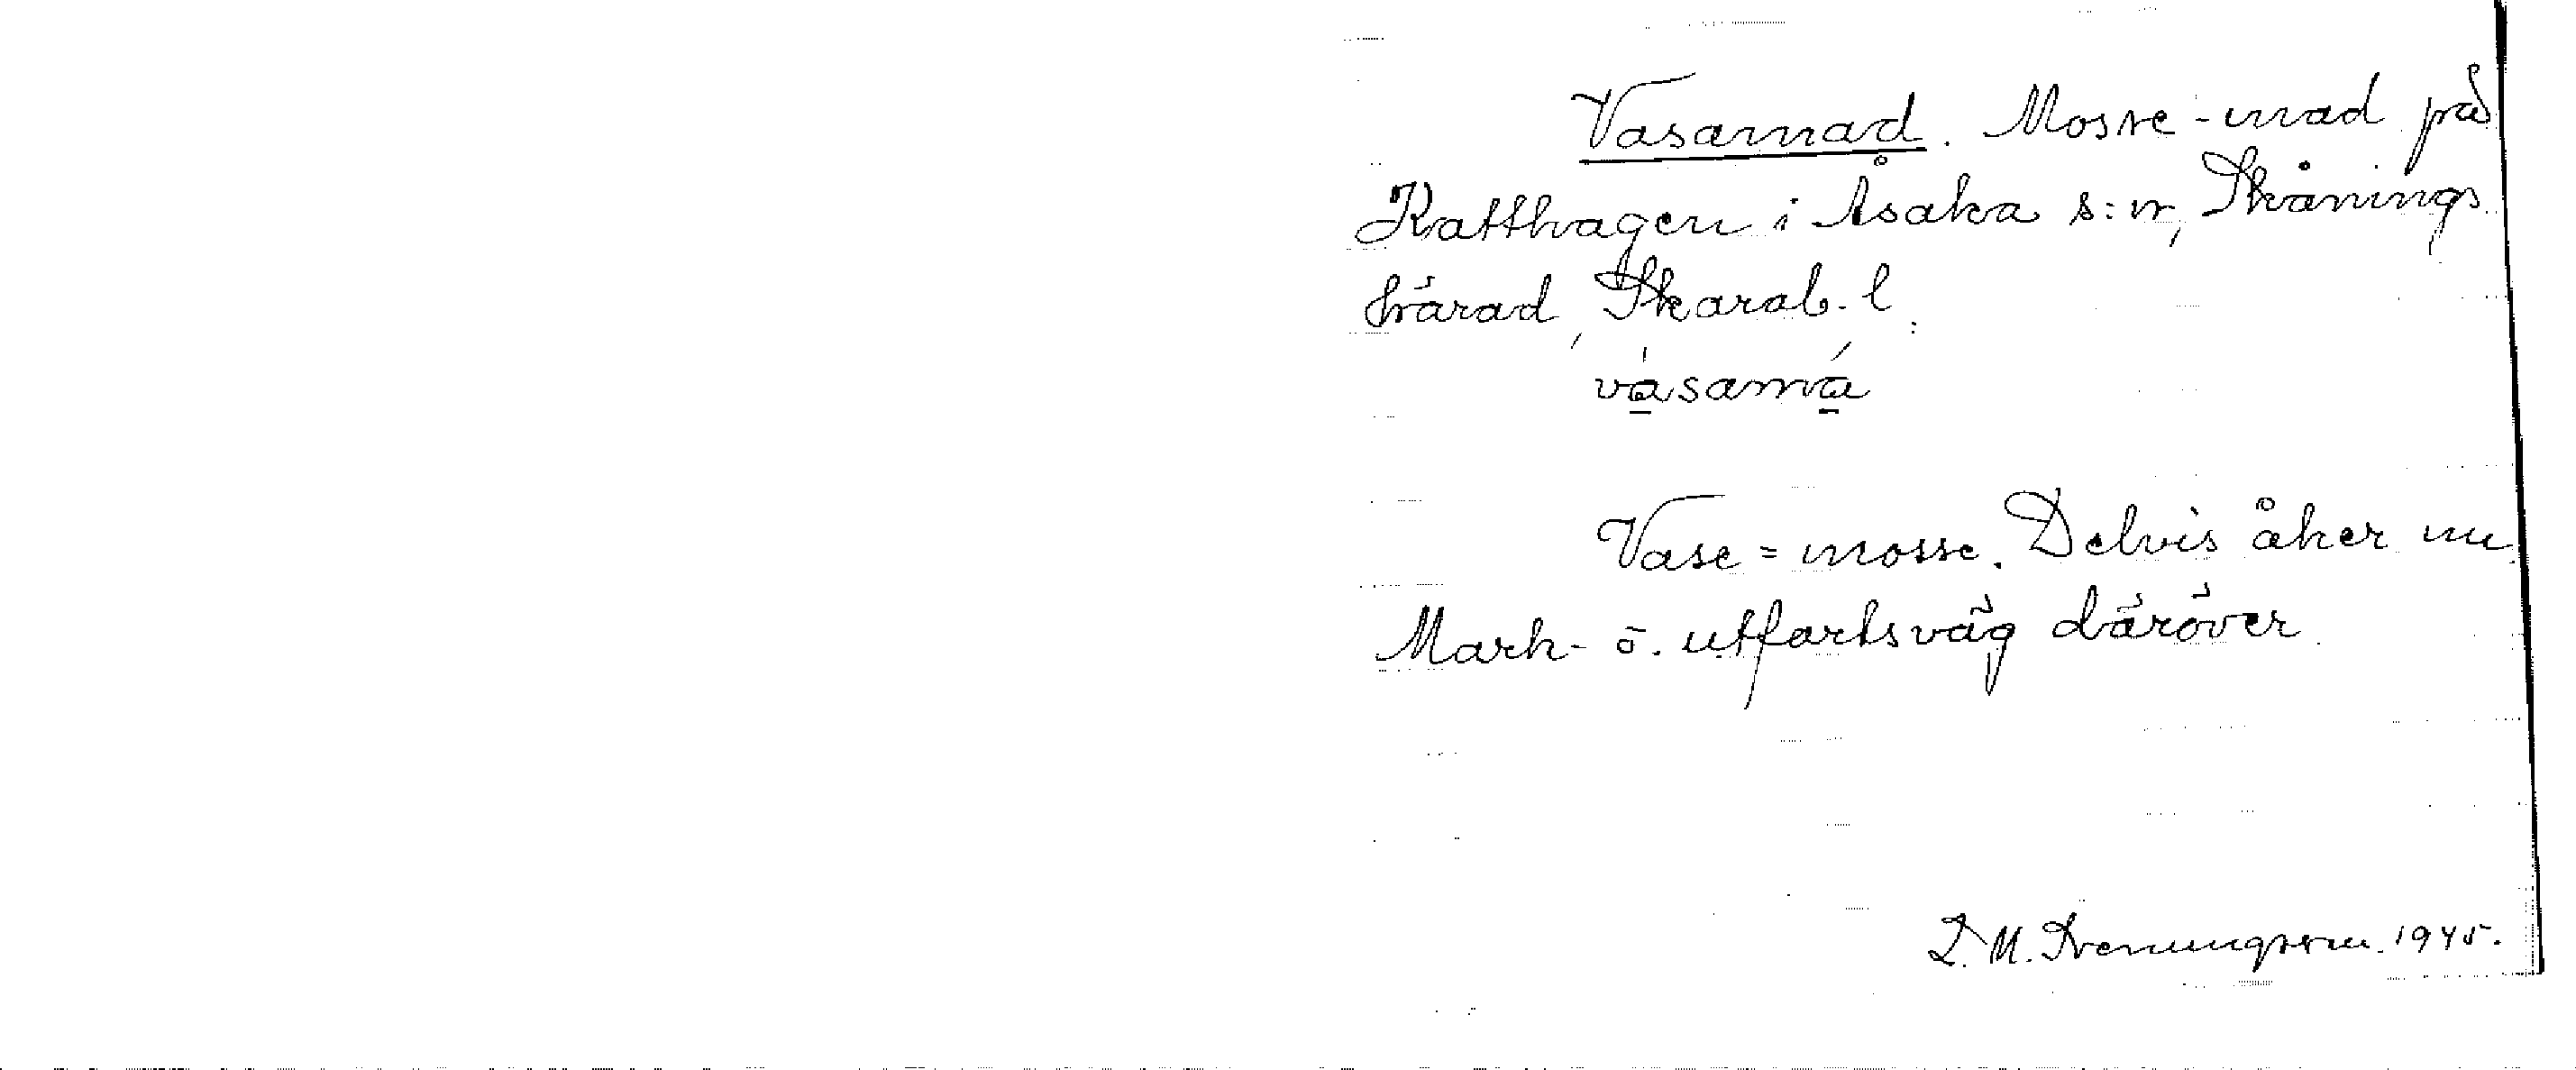 Vasamad. Mosse-mad på
Katthagen i Åsaka s:n, Skånings
härad, Skarab. l.
våsamá
Vase = mosse. Delvis åker nu
Mark- o. utfartsväg däröver.
L. M. Svenungsson. 1945.